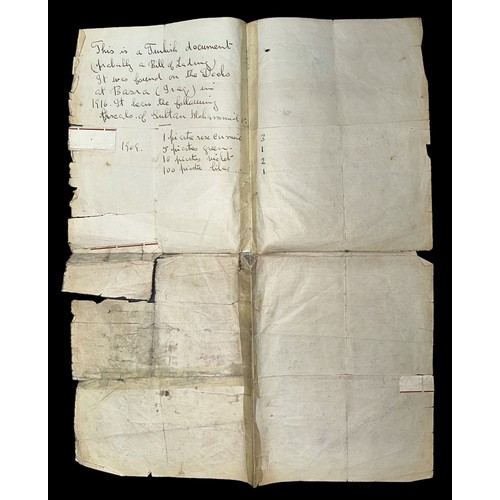 This is a Turkish document
(probably a Bill of Lading)
It was found on the Docks
at Basra (Iraq) in
1916. It bears the following
of Sultan Mohammed V:
1909. 1 piastre rose carmine 3
5 piastres green 1
10 piastres violet 2
100 piastre lilac 1